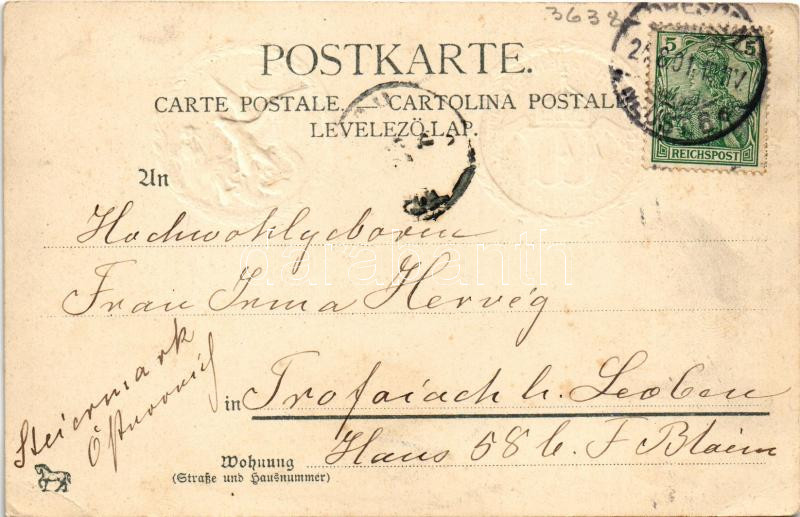 3638
POSTKARTE.
CARTE POSTALE. — CARTOLINA POSTALE
LEVELEZŐ-LAP.
5 5
REICHSPOST
An
Hochwohlgeboren
Frau Irma Hervég
in Trofaiach b. Leoben
Haus 58 b. F Blaim
Steiermark
Österreich
Wohnung
(Straße und Hausnummer)
darabanth